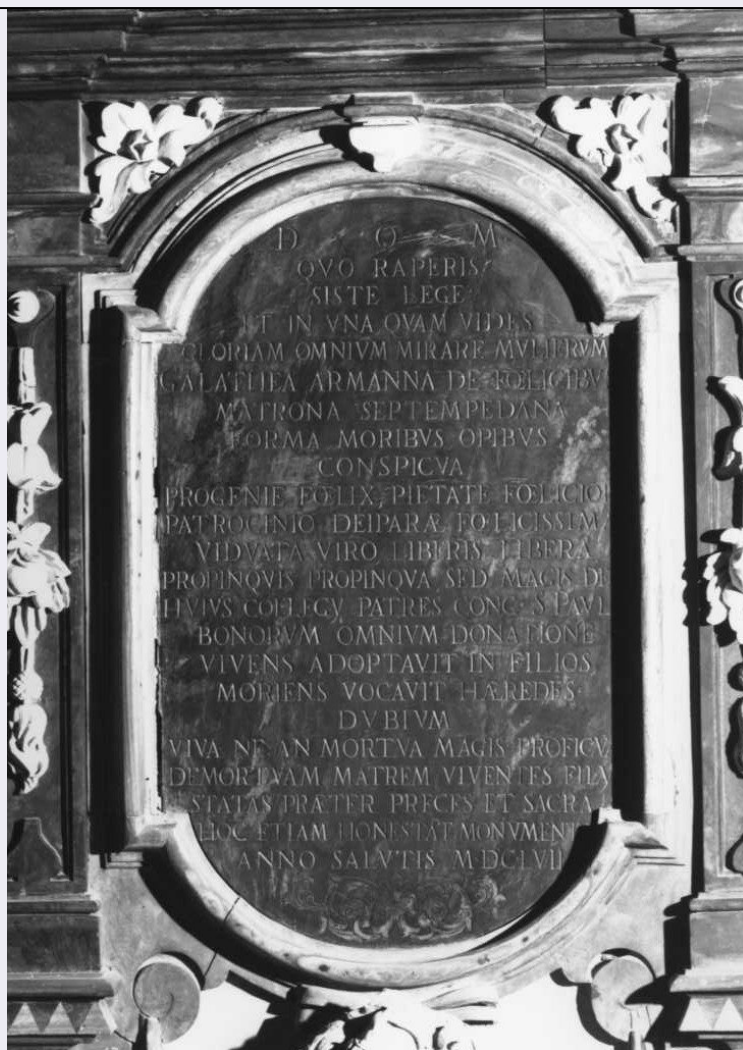 D O M
QVO RAPERIS?
SISTE LEGE
ET IN VNA QVAM VIDES
GLORIAM OMNIVM MIRARE MVLIERVM
GALATHEA ARMANNA DE FŒLICIBV
MATRONA SEPTEMPEDANA
FORMA MORIBVS OPIBVS
CONSPICVA
PROGENIE FŒLIX, PIETATE FŒLICIOR
PATROCINIO DEIPARÆ FŒLICISSIMA
VIDVATA VIRO LIBERIS LIBERA
PROPINQVIS PROPINQVA SED MAGIS DE
HVIVS COLLEGII PATRES CONG. S. PAVL
BONORVM OMNIVM DONATIONE
VIVENS ADOPTAVIT IN FILIOS
MORIENS VOCAVIT HÆREDES.
DVBIVM
VIVA NE AN MORTVA MAGIS PROFICV
DEMORTVAM MATREM VIVENTES FILII
STATAS PRÆTER PRECES ET SACRA
HOC ETIAM HONESTAT MONVMENT
ANNO SALVTIS MDCLVII